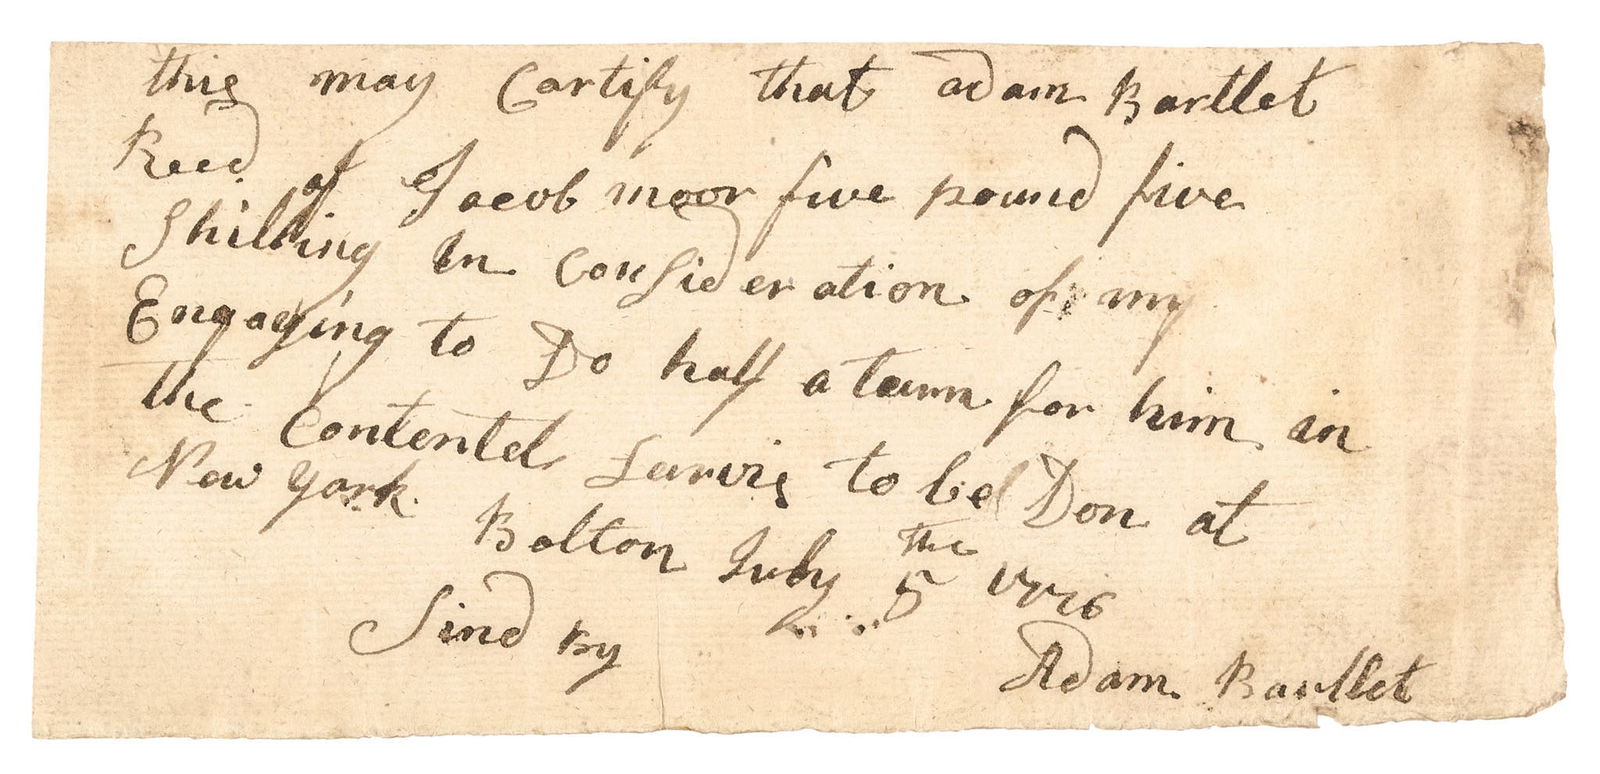 this may Cartify that adam Bartlet
Reed of Jacob moor five pound five
Shilling in Consideration of my
Engaging to Do half a tarn for him in
the Contentel Sarvis to be Don at
New york.
Bolton July the 5 1776
Sind By Adam Bartlet